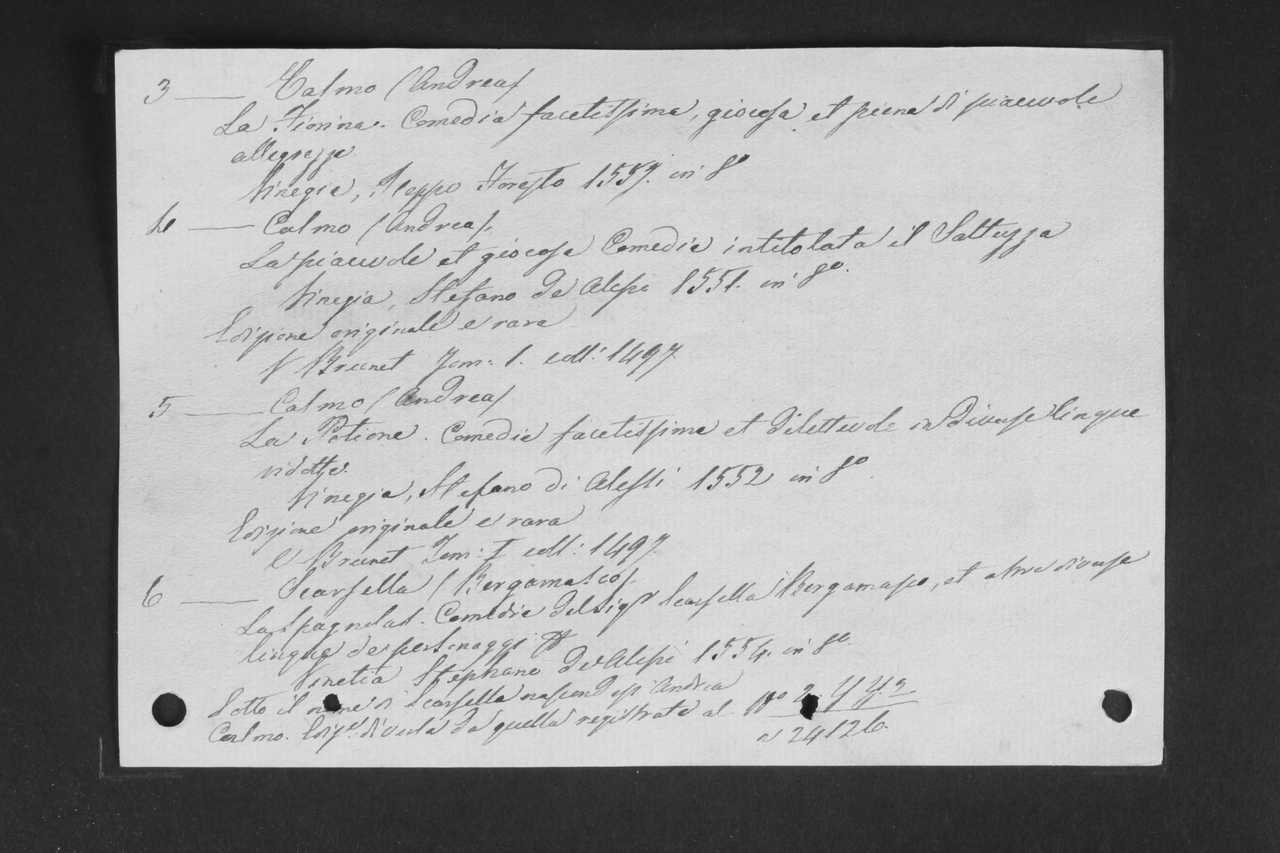 3 — Calmo (Andrea)
La Fiorina. Comedia facetissima, giocosa, et piena di piacevole
allegrezze
Vinegia, Iseppo Foresto 1557. in 8°
4 — Calmo (Andrea).
La piacevole et giocosa Comedia intitolata il Saltuzza
Vinegia, Stefano de Alessi 1551. in 8°.
Edizione originale e rara
V Brunet Tom: 1. coll: 1497.
5 — Calmo (Andrea)
La Potione. Comedia facetissima et dilettevole in diverse lingue
ridotta.
Vinegia, Stefano di Alessi 1552 in 8°
Edizione originale e rara
V Brunet Tom: I coll: 1497.
6 — Scarpella (Bergamasco).
La Spagnolas. Comedia del Sigr Scarpella Bergamasco, et altre diverse
lingue de personaggi
Vinetia Stephano de Alessi 1554. in 8°.
Sotto il nome di Scarpella nascondesi Andrea
Calmo. Edizne diversa da quella registrata al N°
24126.